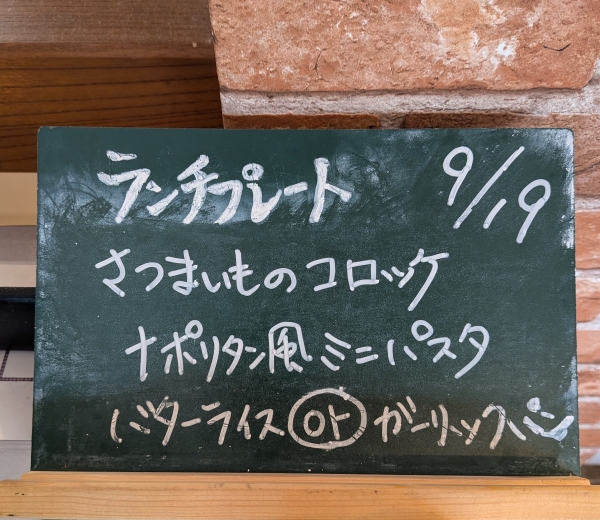 ランチプレート 9/19
さつまいものコロッケ
ナポリタン風ミニパスタ
バターライス or ガーリックパン